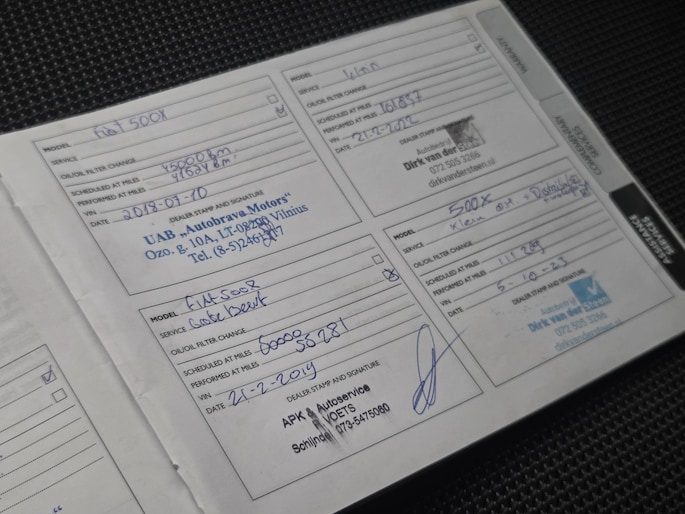 MODEL Fiat 500X
SERVICE
OIL/OIL FILTER CHANGE
SCHEDULED AT MILES 45000 km
PERFORMED AT MILES km
VIN
DATE 2018-07-10
DEALER STAMP AND SIGNATURE
UAB „Autobrava Motors“
Ozo. g. 10A, LT-08200 Vilnius
Tel. (8-5)
MODEL Fiat 500X
SERVICE Grote Beurt
OIL/OIL FILTER CHANGE
SCHEDULED AT MILES 60000
PERFORMED AT MILES 58281
VIN
DATE 21-2-2019
DEALER STAMP AND SIGNATURE
APK & Autoservice
VOETS
Schijndel 073-5475060
MODEL
SERVICE klein
OIL/OIL FILTER CHANGE
SCHEDULED AT MILES
PERFORMED AT MILES 101837
VIN
DATE 21-2-2022
DEALER STAMP AND SIGNATURE
Autobedrijf
Dirk van der Steen
072 505 3266
dirkvandersteen.nl
MODEL 500X
SERVICE Klein OH +
OIL/OIL FILTER CHANGE
SCHEDULED AT MILES
PERFORMED AT MILES 111209
VIN
DATE 5-10-23
DEALER STAMP AND SIGNATURE
Autobedrijf
Dirk van der Steen
072 505 3266
dirkvandersteen.nl
WARRANTY
COMPLEMENTARY
SERVICES
ASSISTANCE
SERVICES